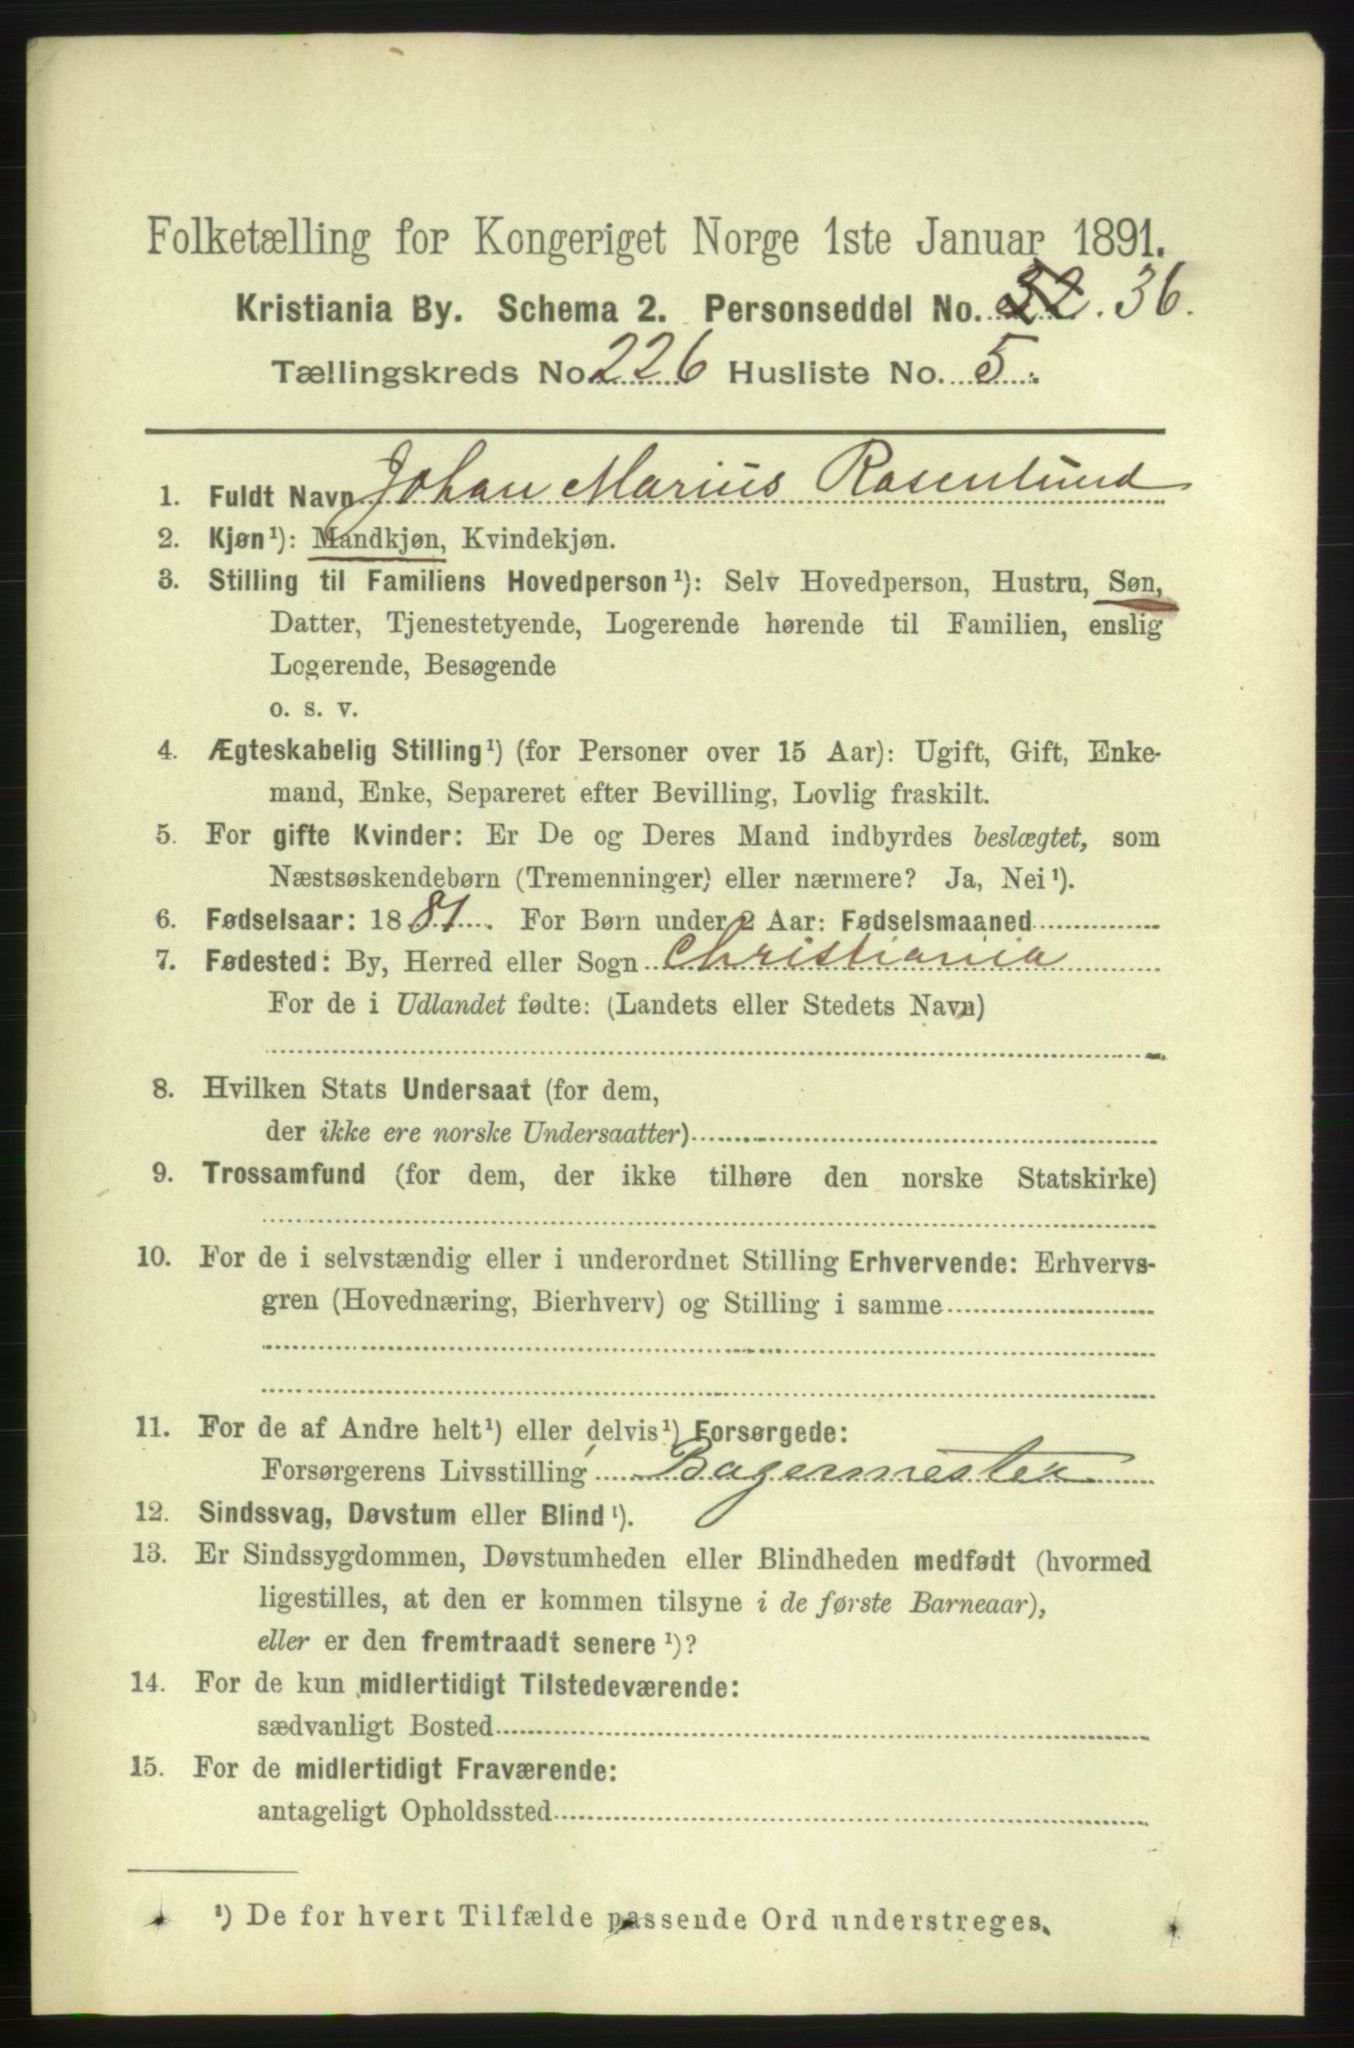 Folketælling for Kongeriget Norge 1ste Januar 1891.
Kristiania By. Schema 2. Personseddel No. 32. 36.
Tællingskreds No. 226 Husliste No. 5.
1. Fuldt Navn Johan Marius Rosenlund
2. Kjøn¹): Mandkjøn, Kvindekjøn.
3. Stilling til Familiens Hovedperson¹): Selv Hovedperson, Hustru, Søn,
Datter, Tjenestetyende, Logerende hørende til Familien, enslig
Logerende, Besøgende
o. s. v.
4. Ægteskabelig Stilling¹) (for Personer over 15 Aar): Ugift, Gift, Enke-
mand, Enke, Separeret efter Bevilling, Lovlig fraskilt.
5. For gifte Kvinder: Er De og Deres Mand indbyrdes beslægtet, som
Næstsøskendebørn (Tremenninger) eller nærmere? Ja, Nei¹).
6. Fødselsaar: 1881. For Børn under 2 Aar: Fødselsmaaned
7. Fødested: By, Herred eller Sogn Christiania
For de i Udlandet fødte: (Landets eller Stedets Navn)
8. Hvilken Stats Undersaat (for dem,
der ikke ere norske Undersaatter)
9. Trossamfund (for dem, der ikke tilhøre den norske Statskirke)
10. For de i selvstændig eller i underordnet Stilling Erhvervende: Erhvervs-
gren (Hovednæring, Bierhverv) og Stilling i samme
11. For de af Andre helt¹) eller delvis¹) Forsørgede:
Forsørgerens Livsstilling Bagermester
12. Sindssvag, Døvstum eller Blind¹).
13. Er Sindssygdommen, Døvstumheden eller Blindheden medfødt (hvormed
ligestilles, at den er kommen tilsyne i de første Barneaar),
eller er den fremtraadt senere¹)?
14. For de kun midlertidigt Tilstedeværende:
sædvanligt Bosted
15. For de midlertidigt Fraværende:
antageligt Opholdssted
¹) De for hvert Tilfælde passende Ord understreges.